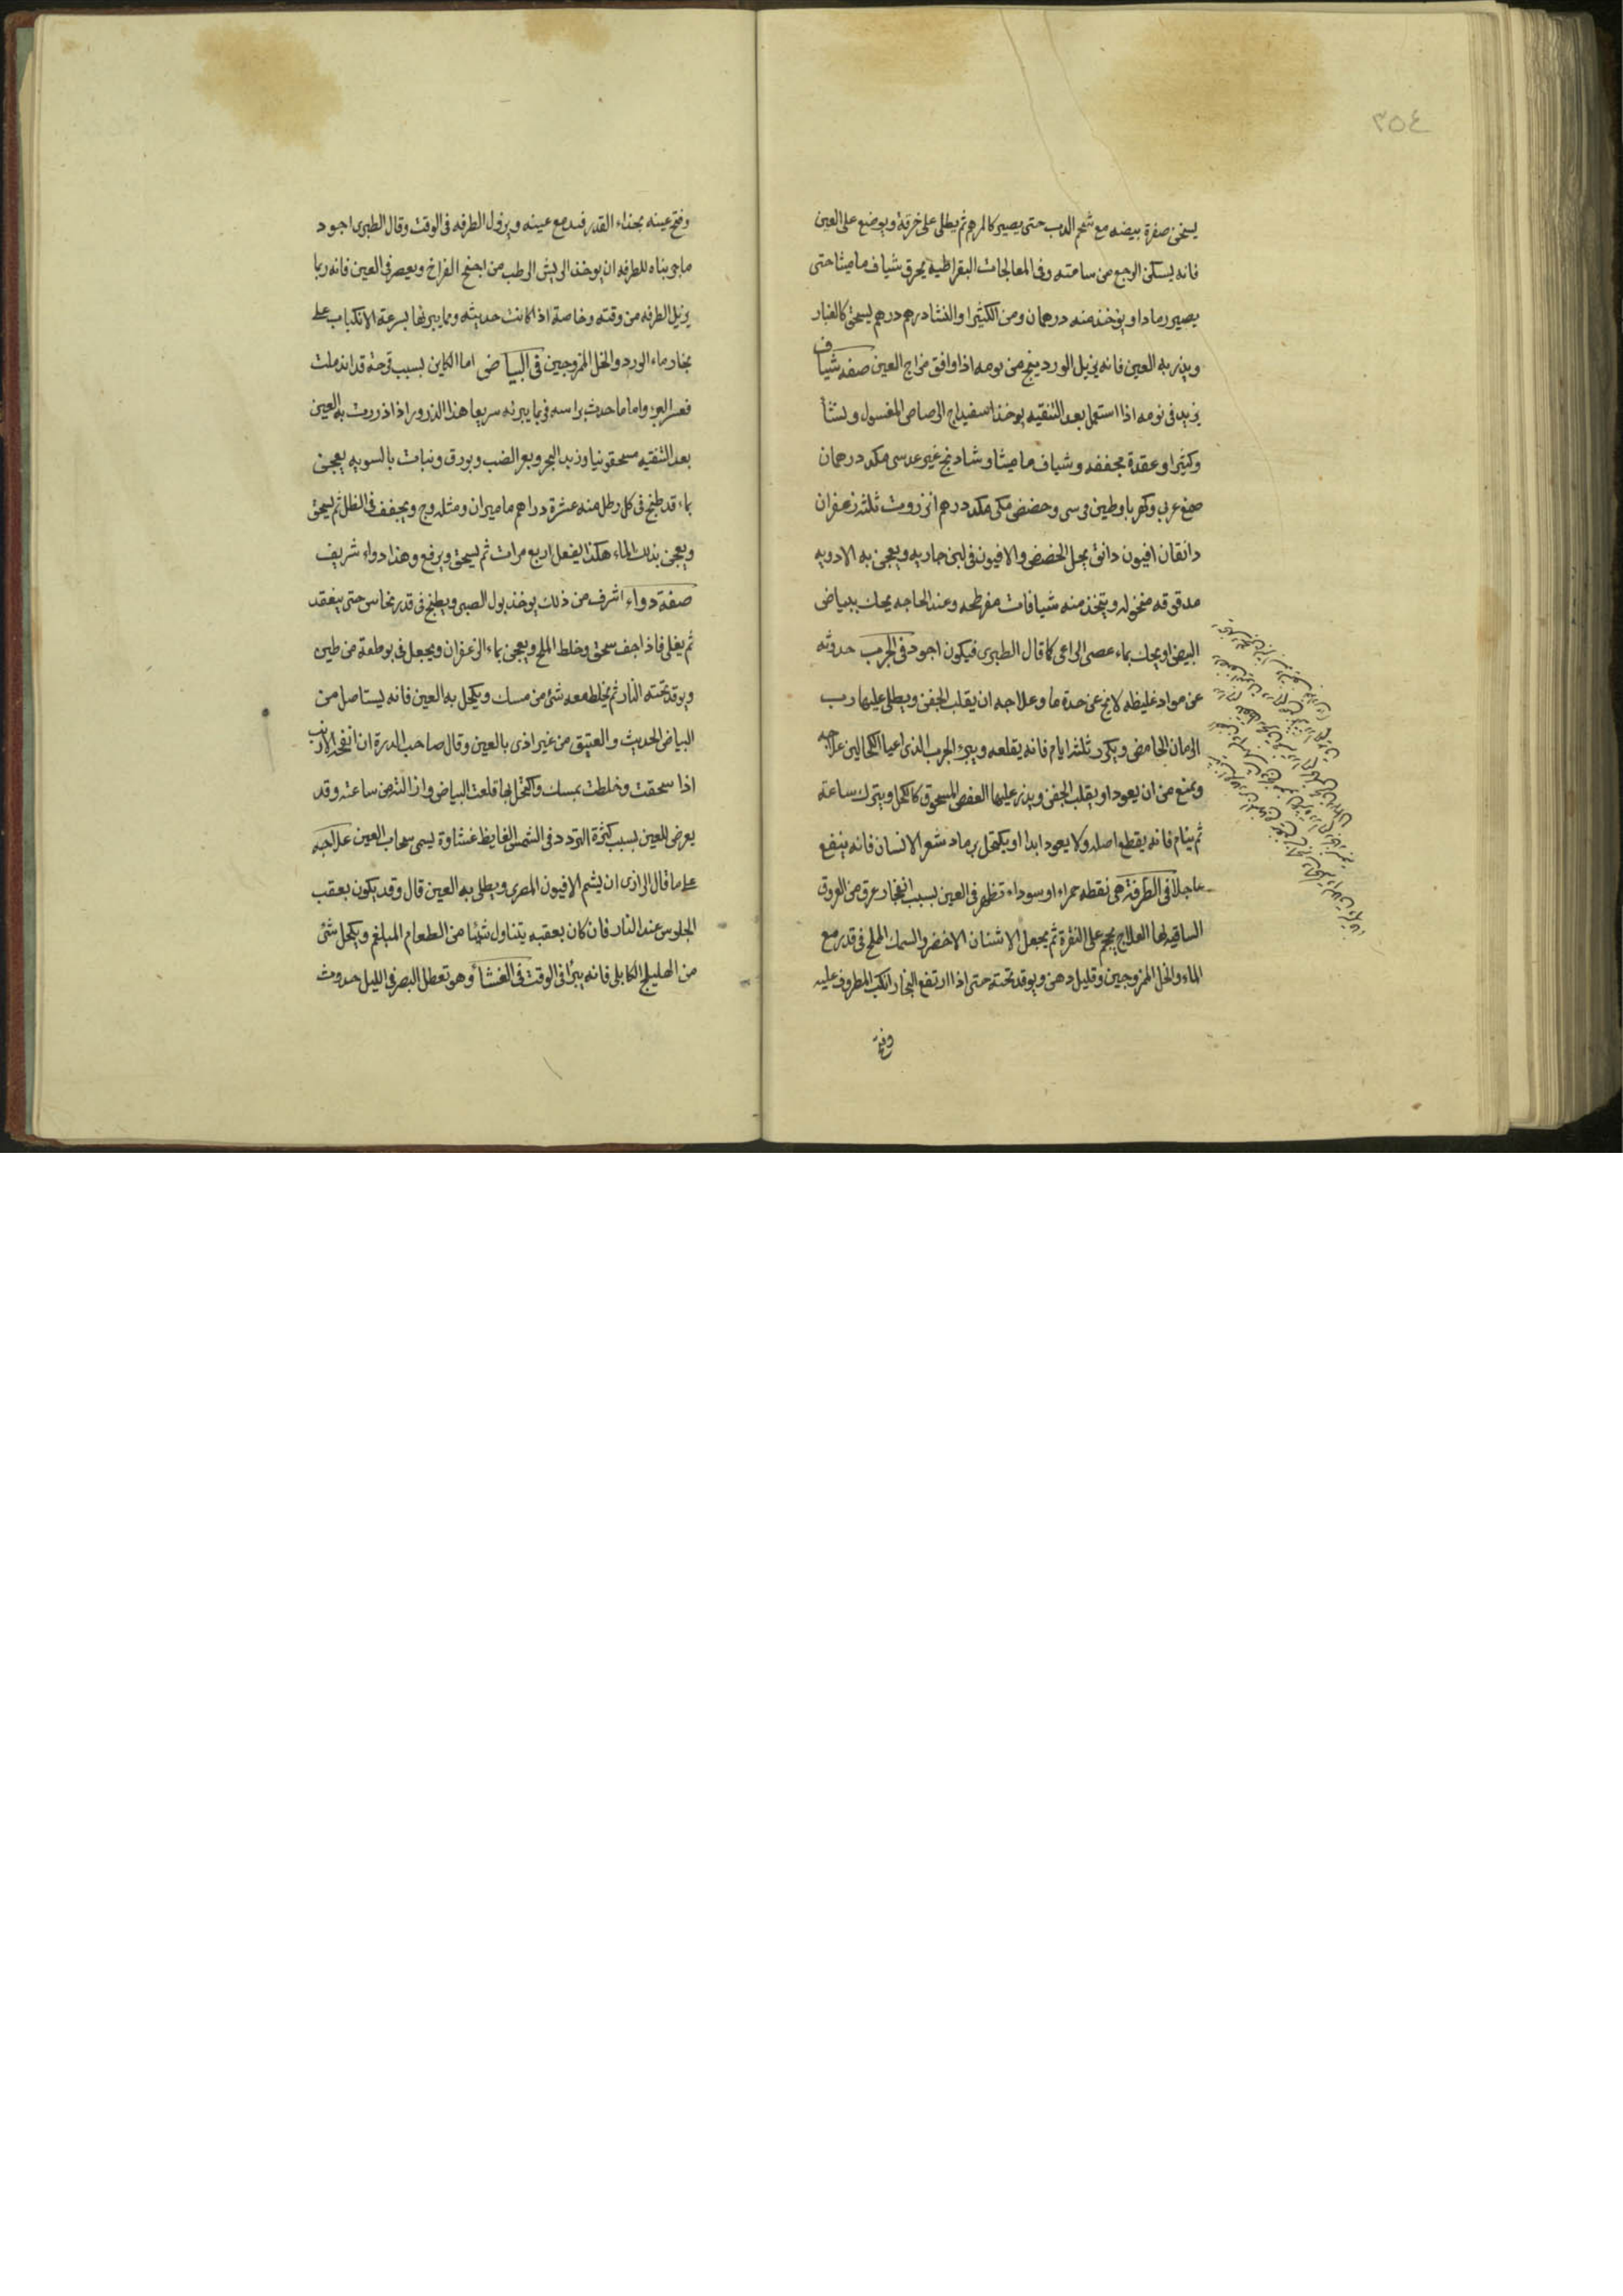 ٣٥٤
يسخن صفرة بيضه مع شحم الدب حتى يصير كالمرهم ثم يطلى على خرقة ويوضع على العين
فانه يسكن الوجع من ساعته وفى المعالجات البقراطيه يحرق شياف ماميثا حتى
يصير رمادا ويؤخذ منه درهمان ومن الكثيرا والنشا درهم درهم يسحق كالغبار
ويذر به العين فانه يزيل الوردينج من يومه اذا وافق مزاج العين صفه شياف
يزيد فى نومه اذا استعمل بعد التنقيه يوخذ اسفيداج الرصاص المغسول ونشا
وكثيرا وعقدة مجففه وشياف ماميثا وشادنج غير عدسى مكد درهمان
صمغ عربى وكهربا وطين وحضض مكى مكد درهم انزروت ثلثه زعفران
دانقان افيون دانق يحل الحضض والافيون فى لبن جاريه ويعجن به الادويه
مدقوقه منخوله ويتخذ منه شيافات مفرطحه وعند الحاجه يحك ببياض
البيض او يحك بماء عصى الراعى كما قال الطبرى فيكون اجود فى الجرب حدوثه
عن مواد غليظه لا يخ عن حدة ما وعلاجه ان يقلب الجفن ويطلى عليها رب
الرمان الحامض ويكرر ثلثه ايام فانه يقلعه ويبرء الجرب الذى اعيا الكحالين علاجه
ويمنع من ان يعود او يقلب الجفن ويذر عليها العفص المسحوق كالكحل ويترك ساعة
ثم ينام فانه يقطع اصله ولا يعود ابدا او يكتحل برماد شعر الانسان فانه ينفع
عاجلا فى الطرفة هى نقطه حمراء او سوداء تظهر فى العين بسبب انفجار عرق من العروق
الساقيه لها العلاج يحجم على النقرة ثم يجعل الاشنان الاخضر والسمك المملح فى قدر مع
الماء والخل الممزوجين وقليل دهن ويوقد تحته حتى اذا ارتفع البخار انكب المطروف عليه
وفتح
وفتح عينه بحذاء القدر فتدمع عينه ويزول الطرفه فى الوقت وقال الطبرى اجود
ما جربناه للطرفه ان يوخذ الريش الرطب من اجنح الفراخ ويعصر فى العين فانه ربما
يزيل الطرفه من وقته وخاصة اذا كانت حديثه ومما يبرئها بسرعة الانكباب على
بخار ماء الورد والخل الممزوجين فى البياض اما الكاين بسبب قرحة قد اندملت
فعسر البرء واما ما حدث براسه فربما يبرئه سريعا هذا الذرور اذا ذررت به العين
بعد التنقيه مسحقونيا وزبد البحر وبعر الضب وبورق ونبات بالسويه يعجن
بماء قد طبخ فى كل رطل منه عشرة دراهم ماميران ومثله وج ويجفف فى الظل ثم يسحق
ويعجن بذلك الماء هكذا يفعل اربع مرات ثم يسحق ويرفع وهذا دواء شريف
صفة دواء اشرف من ذلك يوخذ بول الصبى ويطبخ فى قدر نحاس حتى ينعقد
ثم يغلى فاذا جف سحق وخلط الملح ويعجن بماء الزعفران ويجعل فى بوطقة من طين
ويوقد تحته النار ثم يخلط معه شئ من مسك ويكحل به العين فانه يستاصل من
البياض الحديث والعتيق من غير اذى بالعين وقال صاحب الدرة ان انفحه الارنب
اذا سحقت وخلطت بمسك واكتحل بها قلعت البياض وازالته من ساعته وقد
يعرض للعين بسبب كثرة التردد فى الشمس الغايظ غشاوة يسمى سحاب العين علاجه
على ما قال الرازى ان يشم الافيون المصرى ويطلى به العين قال وقد يكون بعقب
الجلوس عند النار فان كان بعقبه يتناول شيئا من الطعام المبلغم ويكحل شئ
من الهليلج الكابلى فانه يبرا فى الوقت فى الغشا وهو تعطل البصر فى الليل حدوث